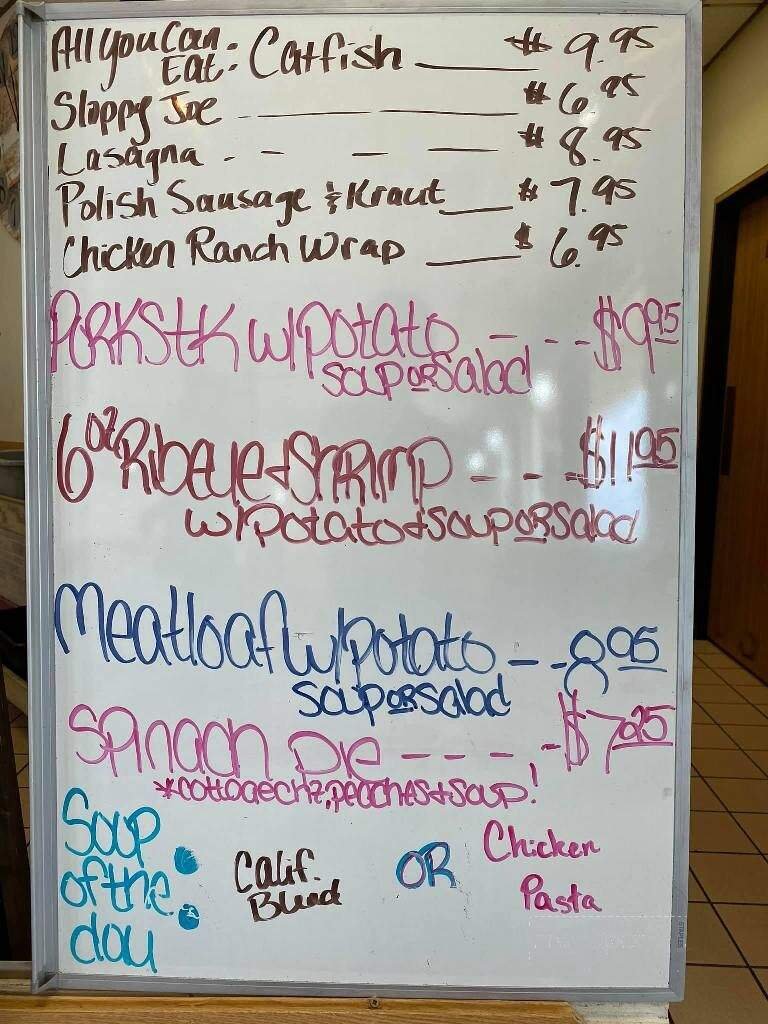 All You Can Eat: Catfish $9.95
Sloppy Joe $6.95
Lasagna $8.95
Polish Sausage & Kraut $7.95
Chicken Ranch Wrap $6.95
PORK Stk w/Potato $9.95
Soup OR Salad
6oz Ribeye + Shrimp $11.95
w/Potato + Soup OR Salad
Meatloaf w/Potato 8.95
Soup OR Salad
Spinach Pie $7.25
*Cottage chz, peaches + Soup!
Soup of the day: Calif. Blend OR Chicken Pasta
STAPLES